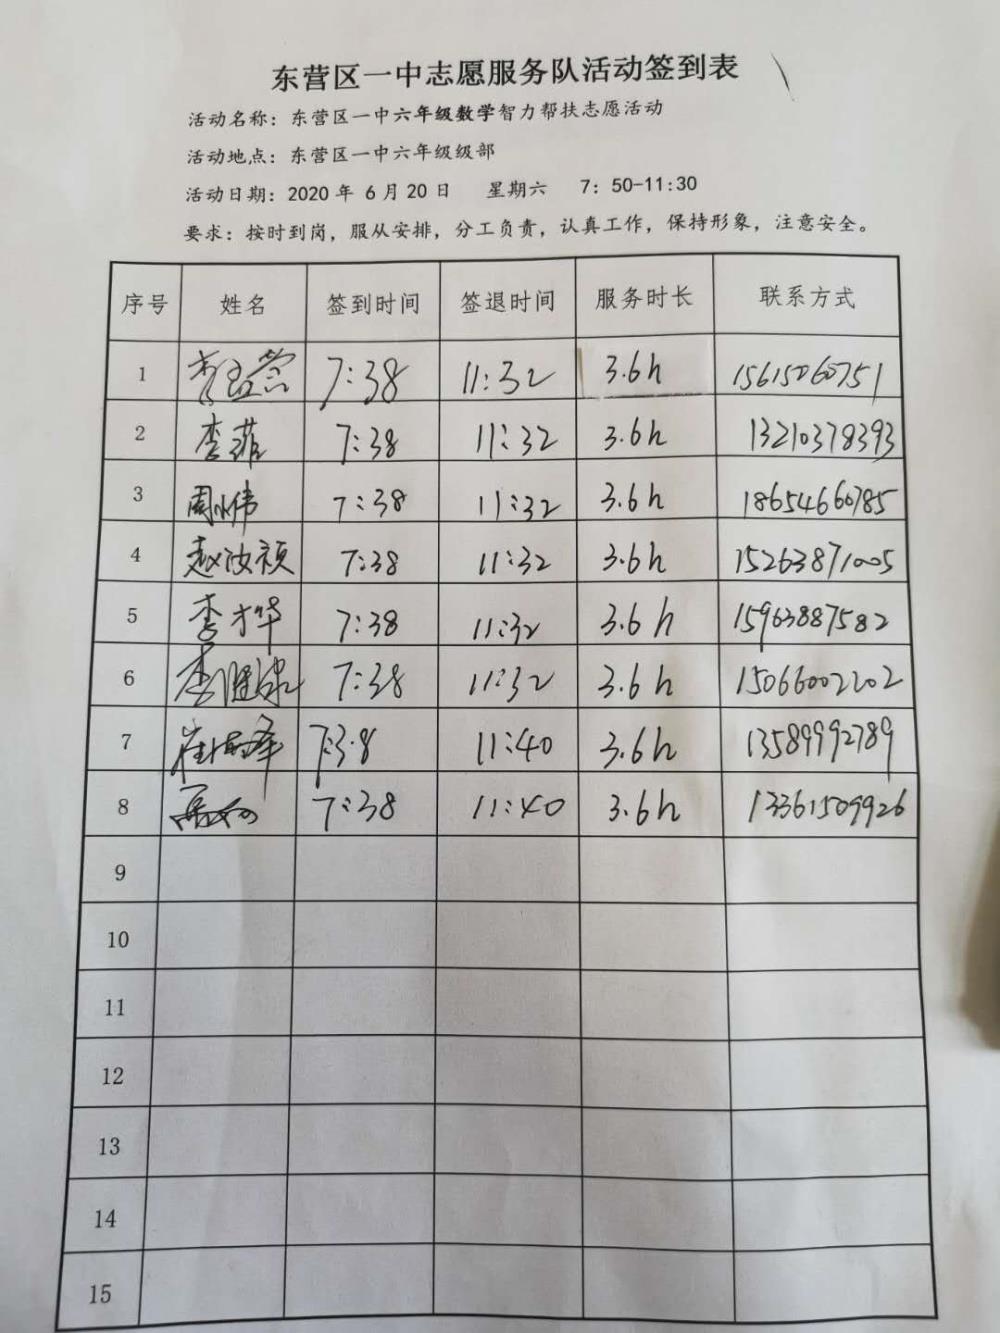 东营区一中志愿服务队活动签到表
活动名称：东营区一中六年级数学智力帮扶志愿活动
活动地点：东营区一中六年级级部
活动日期：2020 年 6 月 20 日 星期六 7：50-11:30
要求：按时到岗，服从安排，分工负责，认真工作，保持形象，注意安全。
序号 姓名 签到时间 签退时间 服务时长 联系方式
1 7:38 11:32 3.6h 15615060751
2 李菲 7:38 11:32 3.6h 13210378393
3 周小伟 7:38 11:32 3.6h 18654660785
4 赵汝祯 7:38 11:32 3.6h 15263871005
5 李才华 7:38 11:32 3.6h 15963887582
6 李 7:38 11:32 3.6h 15066002202
7 崔 7:38 11:40 3.6h 13589992789
8 7:38 11:40 3.6h 13361509926
9
10
11
12
13
14
15